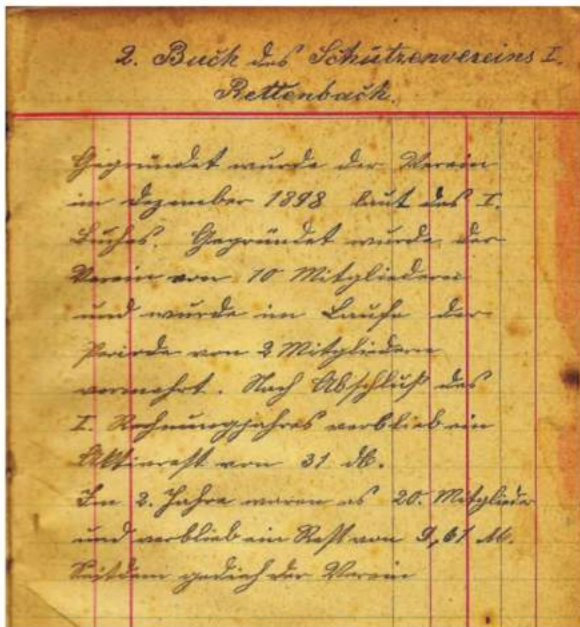 2. Buch des Schützenvereins I.
Rettenbach.
Gegründet wurde der Verein
im Dezember 1898 laut des I.
Buches. Gegründet wurde der
Verein von 10 Mitgliedern
und wurde im Laufe der
Periode von 2 Mitgliedern
vermehrt. Nach Abschluß des
I. Rechnungsjahres verblieb ein
Aktivrest von 31 M.
Im 2. Jahre waren es 20. Mitglieder
und verblieb ein Rest von 9,61 M.
Seitdem gedieh der Verein